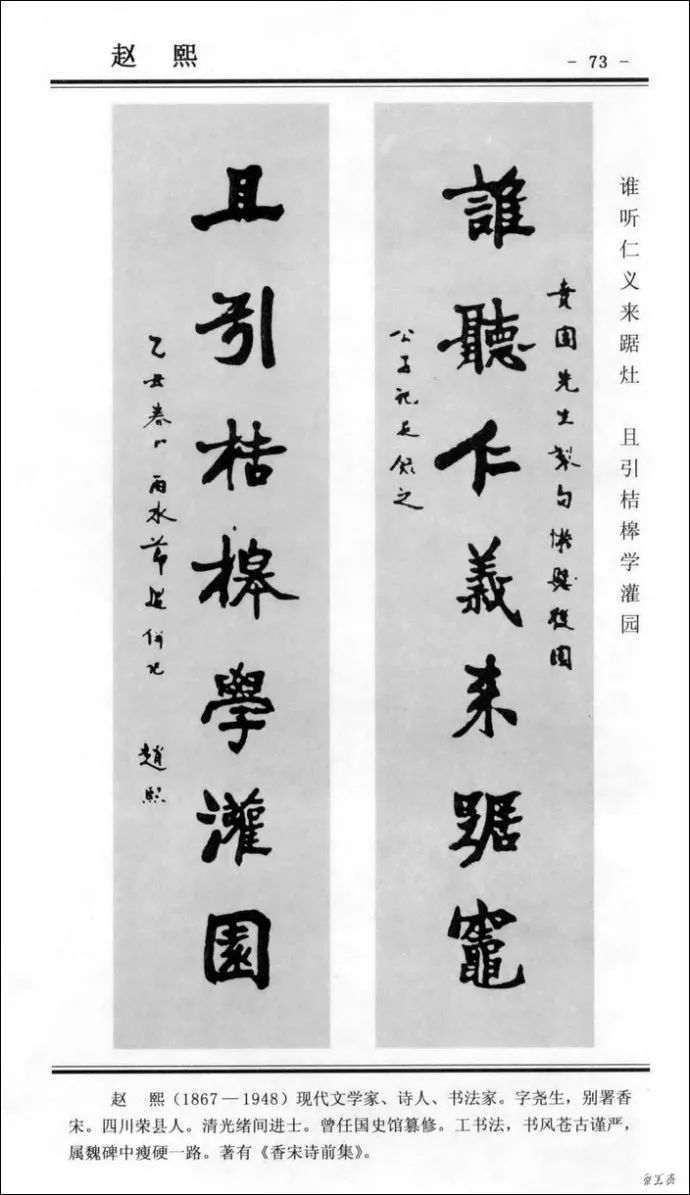 赵 熙
- 73 -
谁听仁义来踞灶 且引桔槔学灌园
誰聽仁義來踞竈
公子祝延飲之
且引桔槔學灌園
乙丑春 雨水節後併記 趙熙
赵 熙(1867—1948)现代文学家、诗人、书法家。字尧生，别署香
宋。四川荣县人。清光绪间进士。曾任国史馆篡修。工书法，书风苍古谨严，
属魏碑中瘦硬一路。著有《香宋诗前集》。